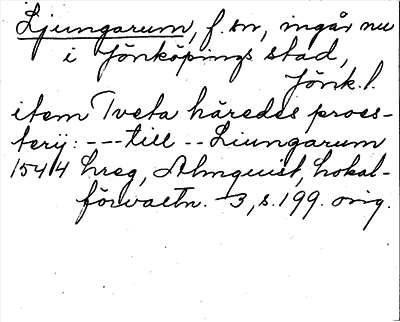 Ljungarum, f. sn, ingår nu
i Jönköpings stad,
Jönk. l.
item Tveta häredes proes-
terij: --- till -- Liungarum
1544 hreg, Almquist, Lokal-
förvaltn. 3, s. 199. orig.